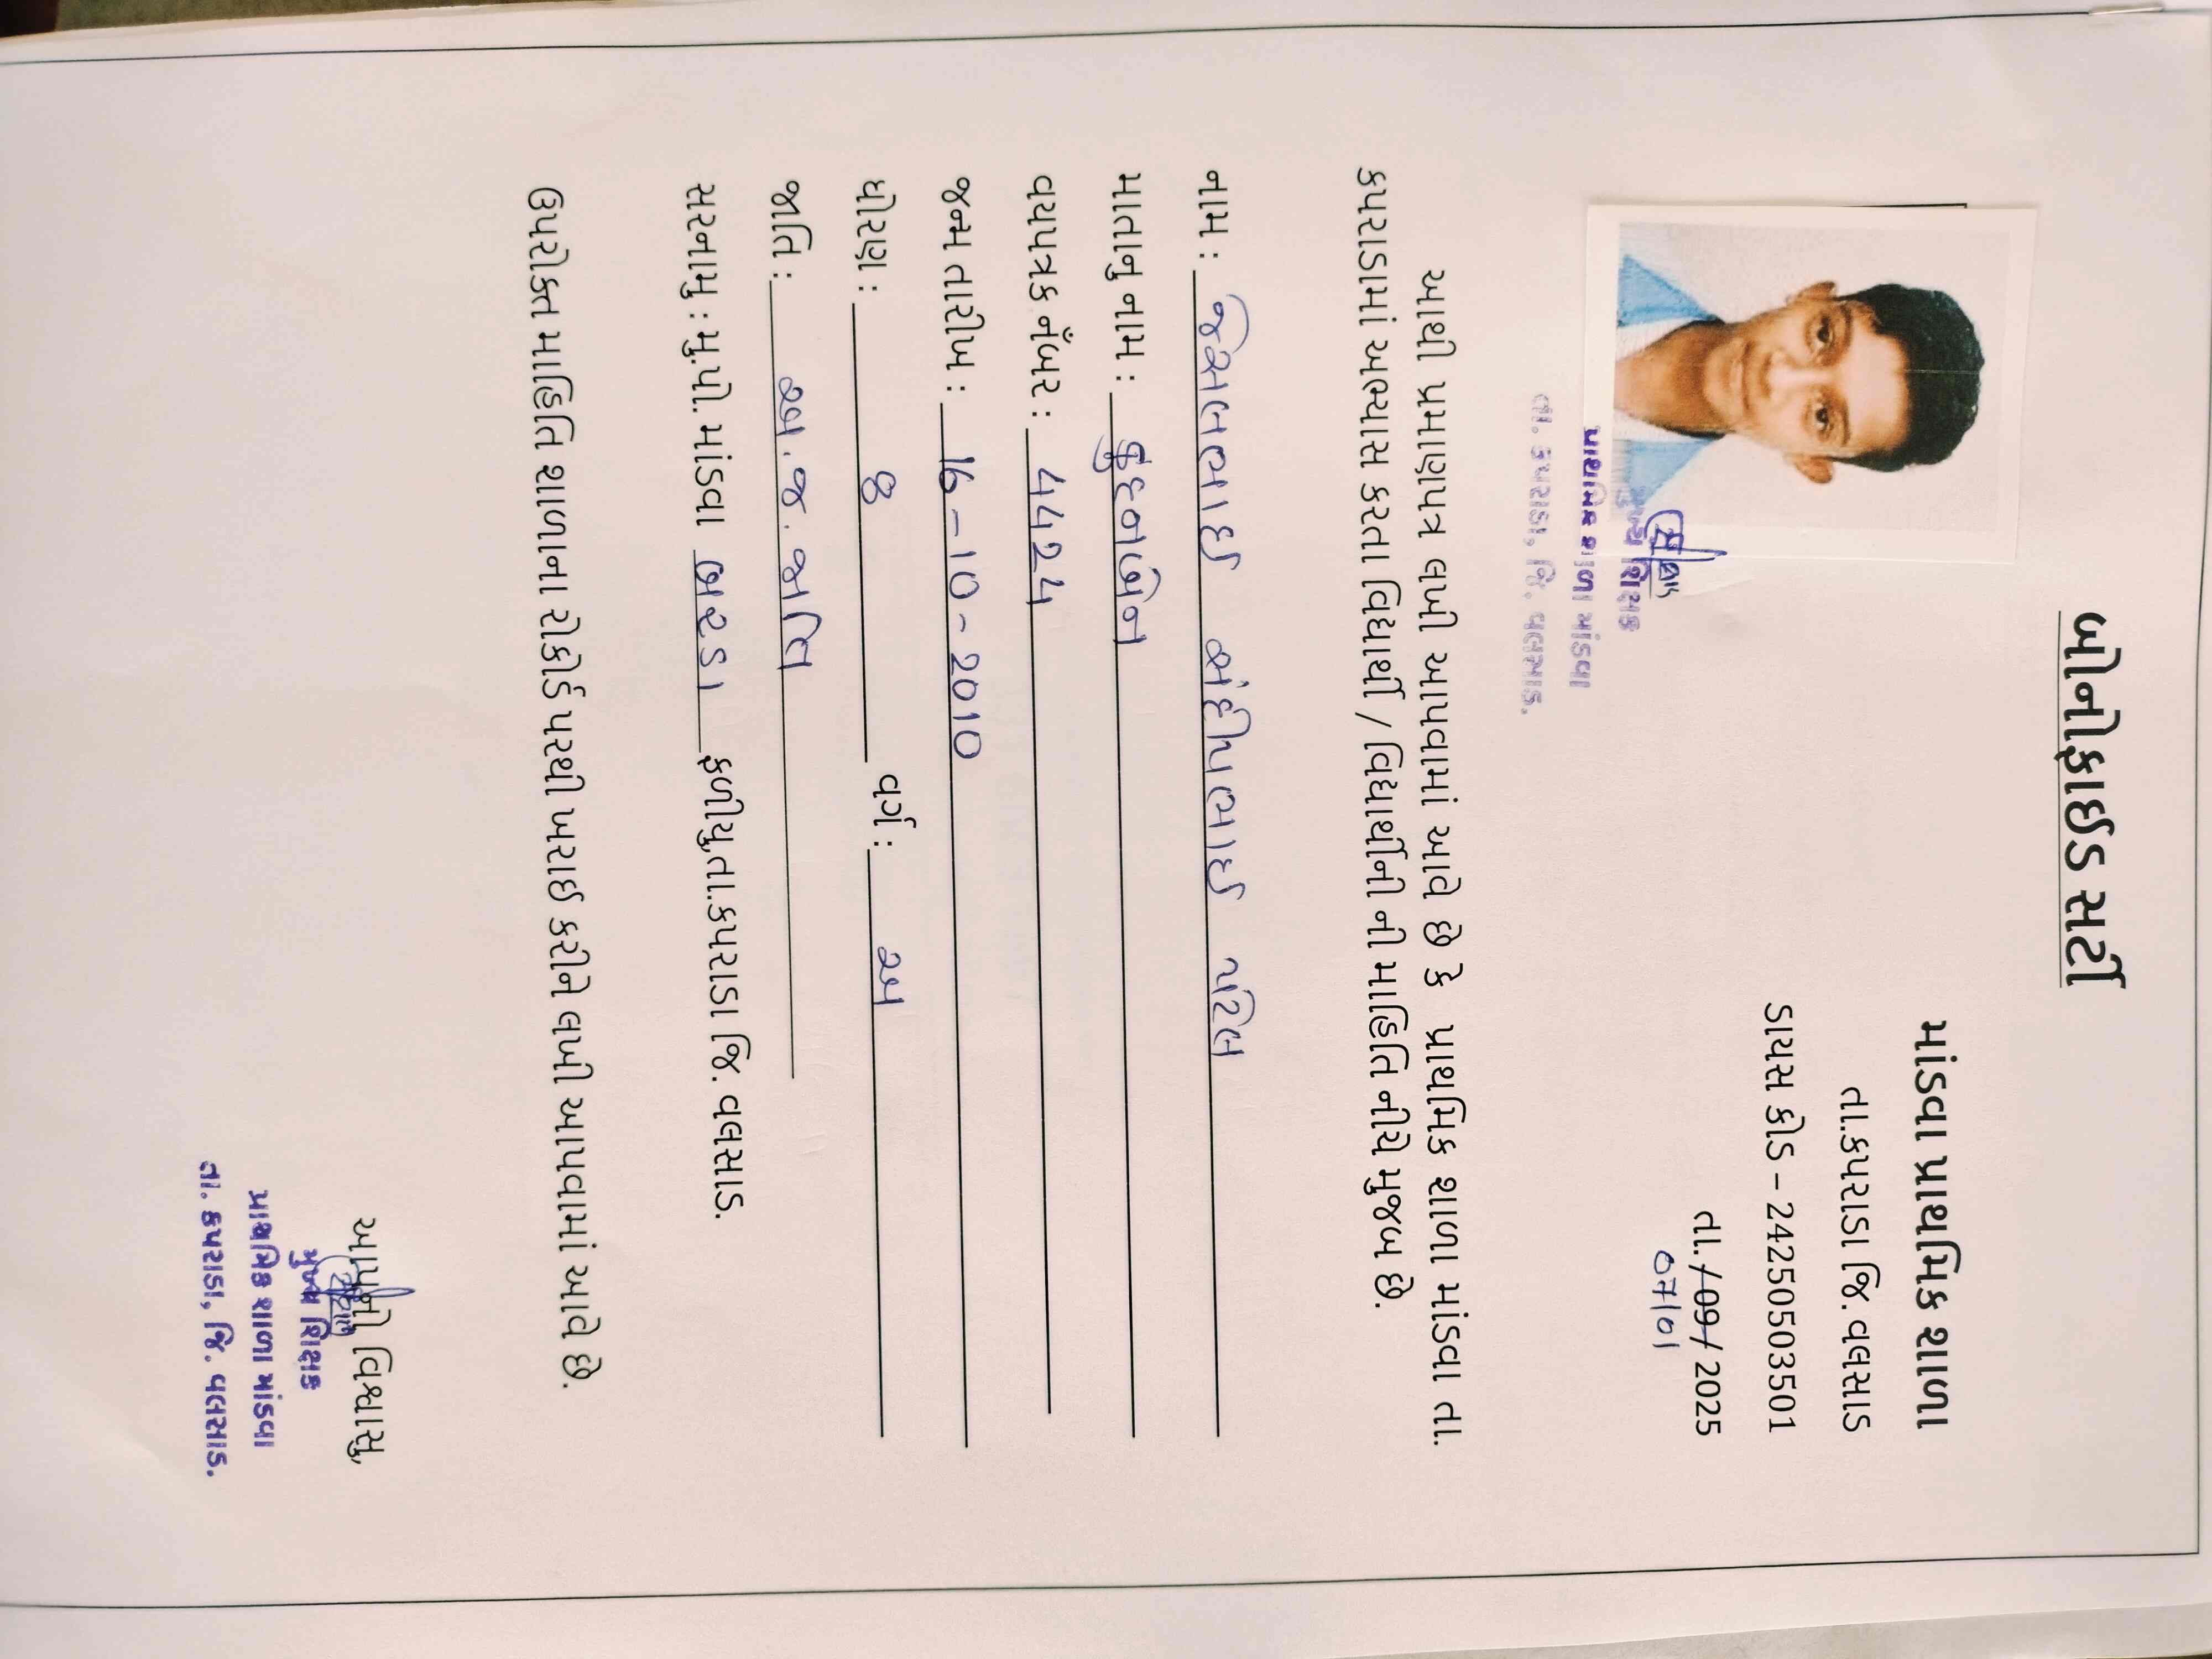 બોનોફાઈડ સર્ટી
માંડવા પ્રાથમિક શાળા
તા.કપરાડા જિ. વલસાડ
ડાયસ કોડ – 24250503501
તા. /09/ 2025
07/01
મુખ્ય શિક્ષક
પ્રાથમિક શાળા માંડવા
તા. કપરાડા, જિ. વલસાડ.
આથી પ્રમાણપત્ર લખી આપવામાં આવે છે કે પ્રાથમિક શાળા માંડવા તા.
કપરાડામાં અભ્યાસ કરતા વિધાર્થી / વિધાર્થીની ની માહિતિ નીચે મુજબ છે.
નામ : જેસલભાઈ સંદીપભાઈ પટેલ
માતાનુ નામ : કુંદનબેન
વયપત્રક નઁબર : 4424
જન્મ તારીખ : 16-10-2010
ધોરણ : 8 વર્ગ : અ
જાતિ : અ.જ.જાતિ
સરનામુ : મુ.પો. માંડવા બરડા ફળીયુ,તા.કપરાડા જિ. વલસાડ.
ઉપરોક્ત માહિતિ શાળાના રેકોર્ડ પરથી ખરાઈ કરીને લખી આપવામાં આવે છે.
આપનો વિશ્વાસુ,
મુખ્ય શિક્ષક
પ્રાથમિક શાળા માંડવા
તા. કપરાડા, જિ. વલસાડ.